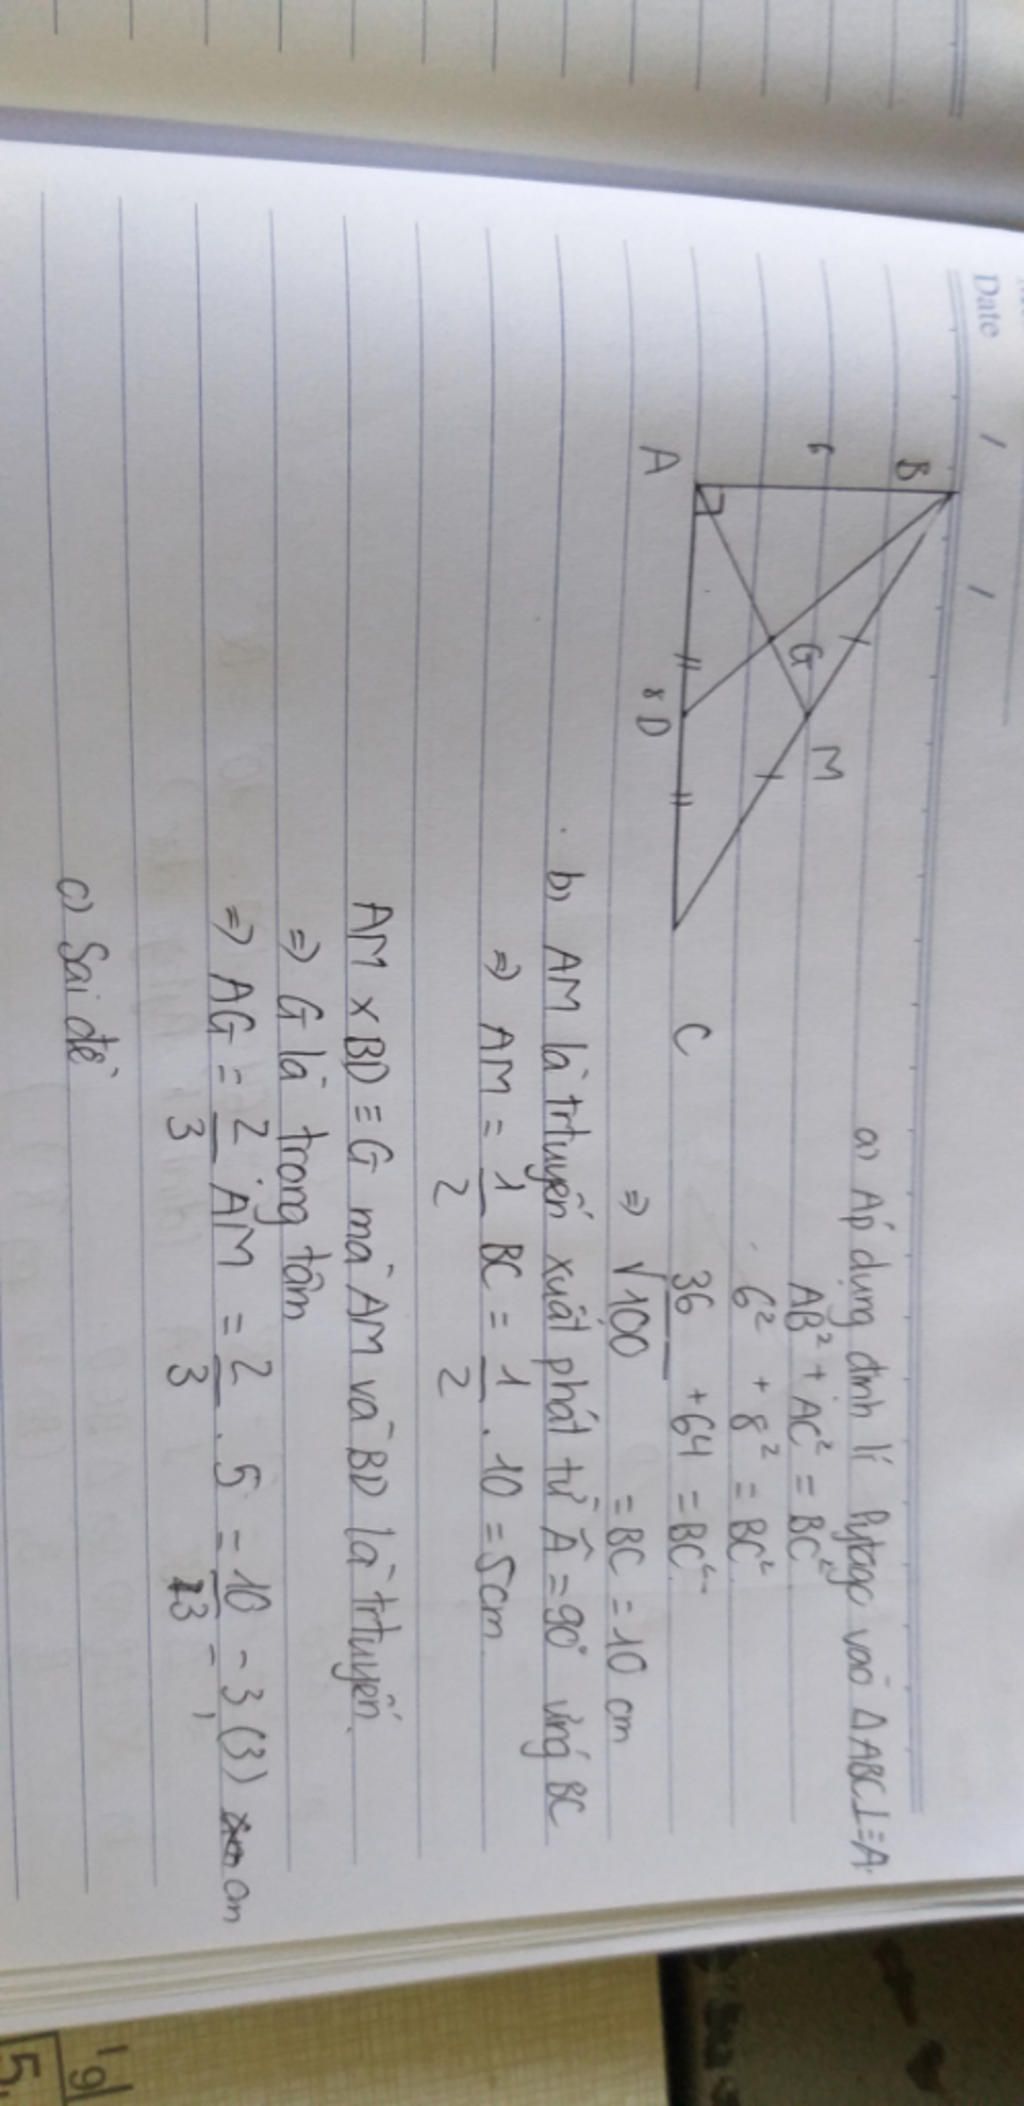 Date / /
B
6
G
M
A
8 D
C
a) Áp dụng định lí Pytago vào △ABC⊥=A
AB² + AC² = BC²
6² + 8² = BC²
36 + 64 = BC²
⇒ √100 = BC = 10 cm
b) AM là trtuyến xuất phát từ Â = 90° ứng BC
⇒ AM = 1/2 BC = 1/2 . 10 = 5cm
AM x BD ≡ G mà AM và BD là trtuyến
⇒ G là trong tâm
⇒ AG = 2/3 AM = 2/3 . 5 = 10/3 = 3,(3) cm
c) Sai đề
19
5